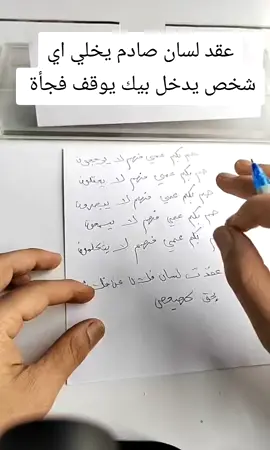 عقد لسان صادم يخلي اي
شخص يدخل بيك يوقف فجأة
صم بكم عمي فهم لا يرجعون
صم بكم عمي فهم لا يعقلون
صم بكم عمي فهم لا يبصرون
صم بكم عمي فهم لا
صم بكم عمي فهم لا يتكلمون
عقدت لسان فلان عن
بحق كهيعص